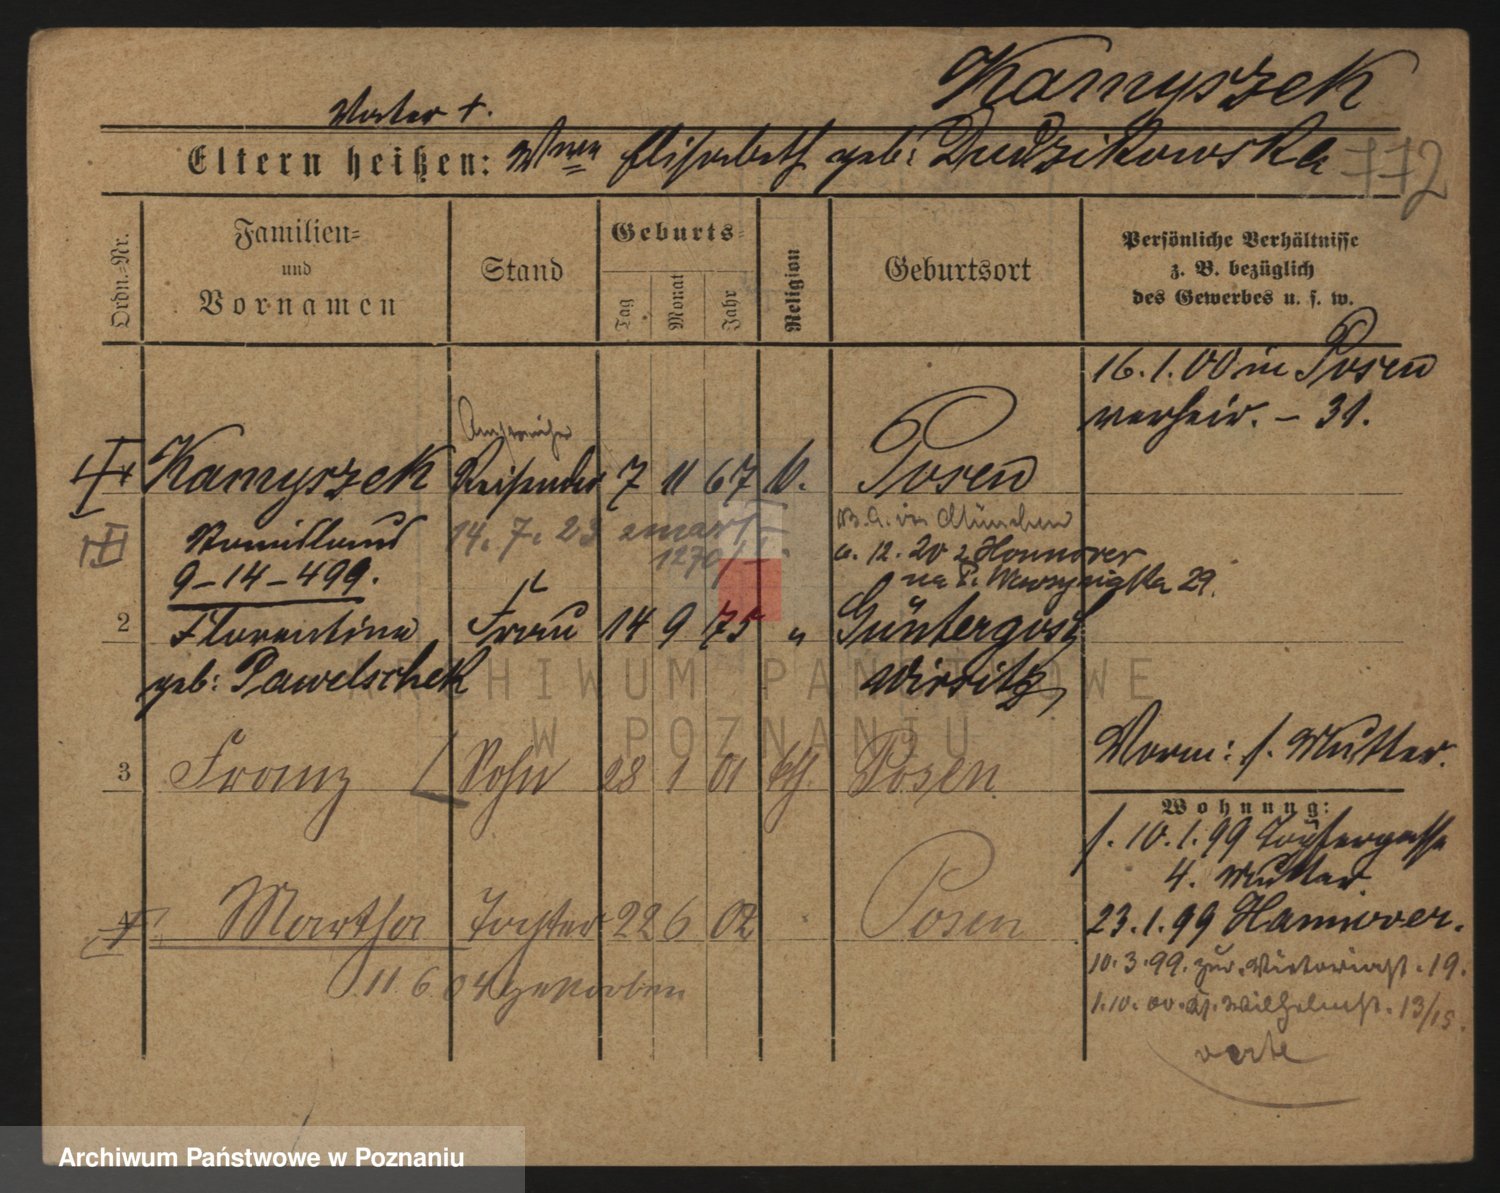 Kamyszek
Vater +.
Eltern heißen: Wwe Elisabeth geb: Dudzikowska 772
Ordn.-Nr.
Familien-
und
Vornamen
Stand
Geburts-
Tag
Monat
Jahr
Religion
Geburtsort
Persönliche Verhältnisse
z. B. bezüglich
des Gewerbes u. s. w.
16.1.00 in Posen
verheir. - 31.
Kamyszek Reisender 7 11 67 k. Posen
14. 7. 23 zmarł
1270/
B.A. in München
a. 12. 20 z Hannover
na 29.
9-14-499.
2 Florentine Frau 14 9 75 " Güntergost
geb: Pawelschek Wirsitz
3 Franz Sohn 28 1 01 kth. Posen
Vorm: s. Mutter.
Wohnung:
s. 10.1.99 Töpfergasse
4. Mutter
4 Martha Tochter 22 6 02 Posen
23.1.99 Hannover.
11 6 04 gestorben
10.3.99. zur. Victoriast. 19.
1.10.00. Wilhelmst. 13/15.
verte
ARCHIWUM PAŃSTWOWE
W POZNANIU
Archiwum Państwowe w Poznaniu